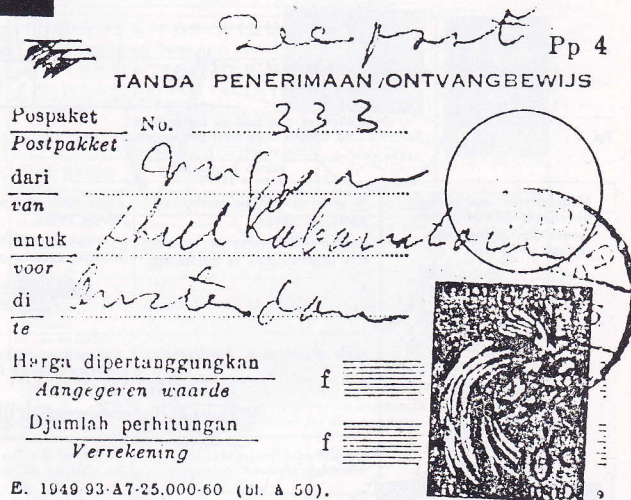 Zeepost Pp 4
TANDA PENERIMAAN/ONTVANGBEWIJS
Pospaket No. 333
Postpakket
dari
van
untuk
voor
di Amsterdam
te
Harga dipertanggungkan f
Aangegeven waarde
Djumlah perhitungan f
Verrekening
E. 1949-93-A7-25.000-60 (bl. à 50).